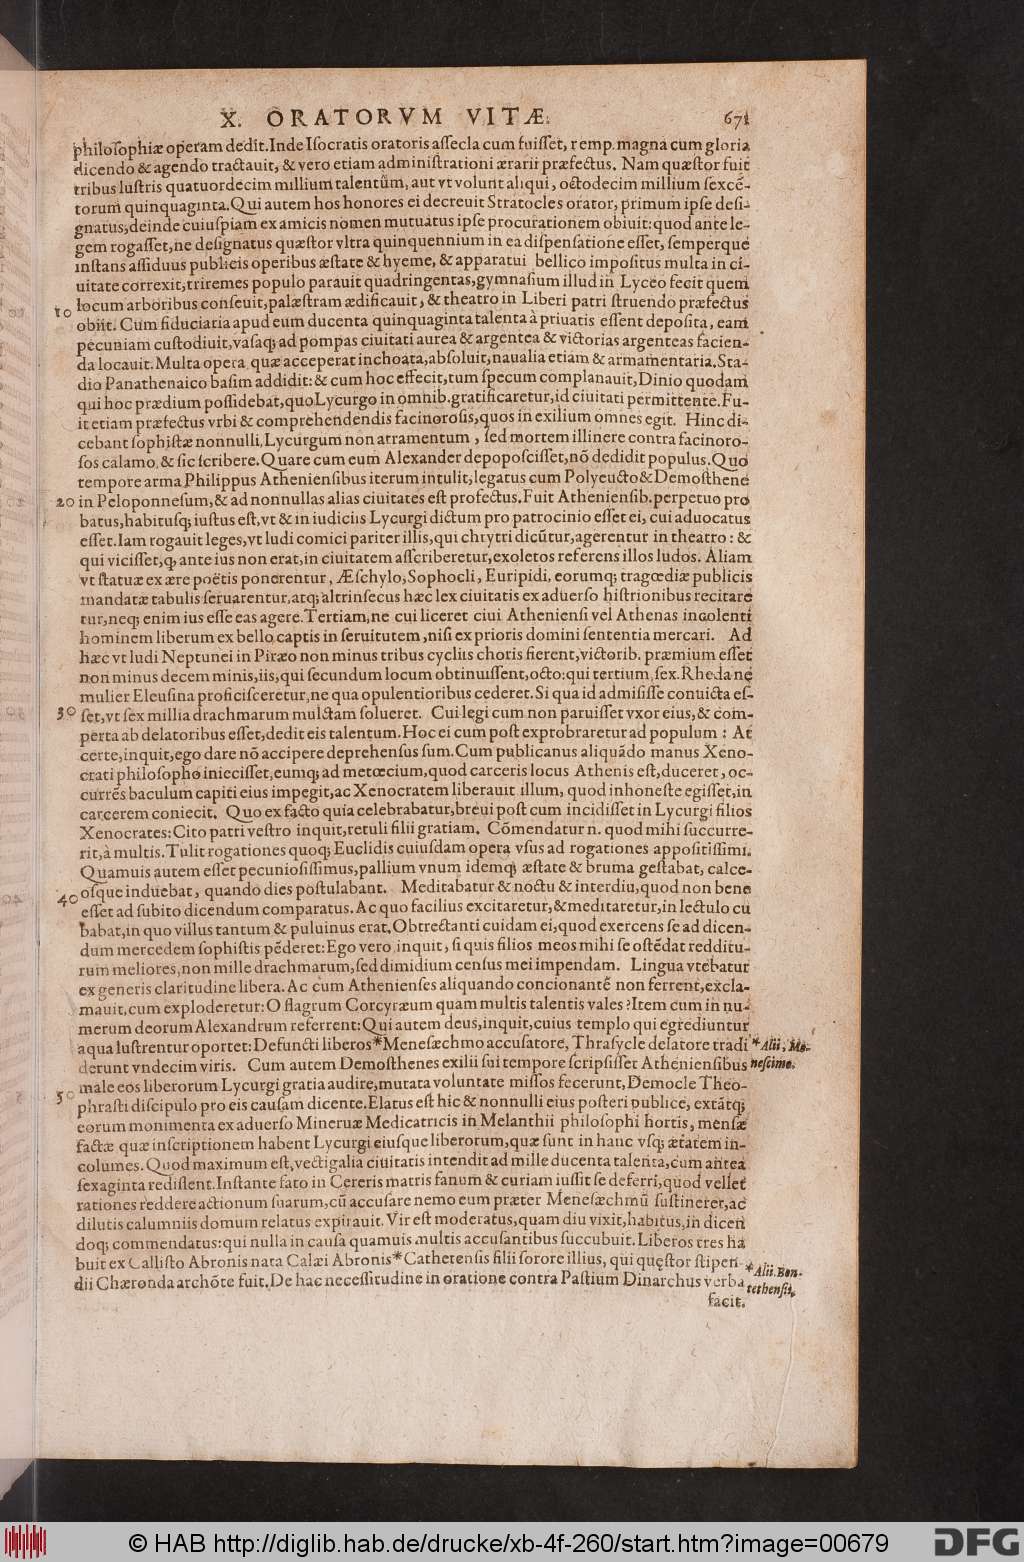 X. ORATORVM VITÆ. 671
philosophiæ operam dedit. Inde Isocratis oratoris assecla cum fuisset, remp. magna cum gloria
dicendo & agendo tractauit, & vero etiam administrationi ærarii præfectus. Nam quæstor fuit
tribus lustris quatuordecim millium talentûm, aut vt volunt aliqui, octodecim millium sexcē-
torum quinquaginta. Qui autem hos honores ei decreuit Stratocles orator, primum ipse desi-
gnatus, deinde cuiuspiam ex amicis nomen mutuatus ipse procurationem obiuit: quod ante le-
gem rogasset, ne designatus quæstor vltra quinquennium in ea dispensatione esset, semperque
instans assiduus publicis operibus æstate & hyeme, & apparatui bellico impositus multa in ci-
uitate correxit, triremes populo parauit quadringentas, gymnasium illud in Lyceo fecit quem
locum arboribus conseuit, palæstram ædificauit, & theatro in Liberi patri struendo præfectus
10 obiit. Cùm fiduciaria apud eum ducenta quinquaginta talenta à priuatis essent deposita, eam
pecuniam custodiuit, vasaq; ad pompas ciuitati aurea & argentea & victorias argenteas facien-
da locauit. Multa opera quæ acceperat inchoata, absoluit, naualia etiam & armamentaria. Sta-
dio Panathenaico basim addidit: & cum hoc effecit, tum specum complanauit, Dinio quodam
qui hoc prædium possidebat, quo Lycurgo in omnib. gratificaretur, id ciuitati permittente. Fu-
it etiam præfectus vrbi & comprehendendis facinorosis, quos in exilium omnes egit. Hinc di-
cebant sophistæ nonnulli, Lycurgum non atramentum, sed mortem illinere contra facinoro-
sos calamo, & sic scribere. Quare cum eum Alexander depoposcisset, nō dedidit populus. Quo
tempore arma Philippus Atheniensibus iterum intulit, legatus cum Polyeucto & Demosthene
20 in Peloponnesum, & ad nonnullas alias ciuitates est profectus. Fuit Atheniensib. perpetuo pro
batus, habitusq; iustus est, vt & in iudiciis Lycurgi dictum pro patrocinio esset ei, cui aduocatus
esset. Iam rogauit leges, vt ludi comici pariter illis, qui chrytri dicūtur, agerentur in theatro: &
qui vicisset, q̄ ante ius non erat, in ciuitatem asscriberetur, exoletos referens illos ludos. Aliam
vt statuæ ex ære poëtis ponerentur, Æschylo, Sophocli, Euripidi, eorumq; tragœdiæ publicis
mandatæ tabulis seruarentur, atq; altrinsecus hæc lex ciuitatis ex aduerso histrionibus recitare
tur, neq; enim ius esse eas agere. Tertiam, ne cui liceret ciui Atheniensi vel Athenas incolenti
hominem liberum ex bello captis in seruitutem, nisi ex prioris domini sententia mercari. Ad
hæc vt ludi Neptunei in Piræo non minus tribus cycliis choris fierent, victorib. præmium esset
non minus decem minis, iis, qui secundum locum obtinuissent, octo: qui tertium, sex. Rheda ne
mulier Eleusina proficisceretur, ne qua opulentioribus cederet. Si qua id admisisse conuicta es-
30 set, vt sex millia drachmarum mulctam solueret. Cui legi cum non paruisset vxor eius, & com-
perta ab delatoribus esset, dedit eis talentum. Hoc ei cum post exprobraretur ad populum: At
certe, inquit, ego dare nō accipere deprehensus sum. Cum publicanus aliquādo manus Xeno-
crati philosopho iniecisset, eumq; ad metœcium, quod carceris locus Athenis est, duceret, oc-
currēs baculum capiti eius impegit, ac Xenocratem liberauit illum, quod inhoneste egisset, in
carcerem coniecit. Quo ex facto quia celebrabatur, breui post cum incidisset in Lycurgi filios
Xenocrates: Cito patri vestro inquit, retuli filii gratiam. Cōmendatur n. quod mihi succurre-
rit, à multis. Tulit rogationes quoq; Euclidis cuiusdam opera vsus ad rogationes appositissimi.
Quamuis autem esset pecuniosissimus, pallium vnum idemq; æstate & bruma gestabat, calce-
osque induebat, quando dies postulabant. Meditabatur & noctu & interdiu, quod non bene
40 esset ad subito dicendum comparatus. Ac quo facilius excitaretur, & meditaretur, in lectulo cu
babat, in quo villus tantum & puluinus erat. Obtrectanti cuidam ei, quod exercens se ad dicen-
dum mercedem sophistis pēderet: Ego vero inquit, si quis filios meos mihi se ostēdat redditu-
rum meliores, non mille drachmarum, sed dimidium census mei impendam. Lingua vtebatur
ex generis claritudine libera. Ac cum Athenienses aliquando concionantē non ferrent, excla-
mauit, cum exploderetur: O flagrum Corcyræum quam multis talentis vales? Item cum in nu-
merum deorum Alexandrum referrent: Qui autem deus, inquit, cuius templo qui egrediuntur
aqua lustrentur oportet: Defuncti liberos * Menesæchmo accusatore, Thrasycle delatore tradi * Alii, Me-
derunt vndecim viris. Cum autem Demosthenes exilii sui tempore scripsisset Atheniensibus nescimo.
male eos liberorum Lycurgi gratia audire, mutata voluntate missos fecerunt, Democle Theo-
50 phrasti discipulo pro eis causam dicente. Elatus est hic & nonnulli eius posteri publice, extātq;
eorum monimenta ex aduerso Mineruæ Medicatricis in Melanthii philosophi hortis, mensæ
factæ quæ inscriptionem habent Lycurgi eiusque liberorum, quæ sunt in hanc vsq; ætatem in-
columes. Quod maximum est, vectigalia ciuitatis intendit ad mille ducenta talenta, cum antea
sexaginta redissent. Instante fato in Cereris matris fanum & curiam iussit se deferri, quod vellet
rationes reddere actionum suarum, cū accusare nemo eum præter Menesæchmū sustineret, ac
dilutis calumniis domum relatus expirauit. Vir est moderatus, quam diu vixit, habitus, in dicen
doq; commendatus: qui nulla in causa quamuis multis accusantibus succubuit. Liberos tres ha
buit ex Callisto Abronis nata Calæi Abronis * Cathetensis filii sorore illius, qui quęstor stipen- * Alii. Ben-
dii Chæronda archōte fuit. De hac necessitudine in oratione contra Pastium Dinarchus verba tethensis.
facit.
© HAB http://diglib.hab.de/drucke/xb-4f-260/start.htm?image=00679 DFG